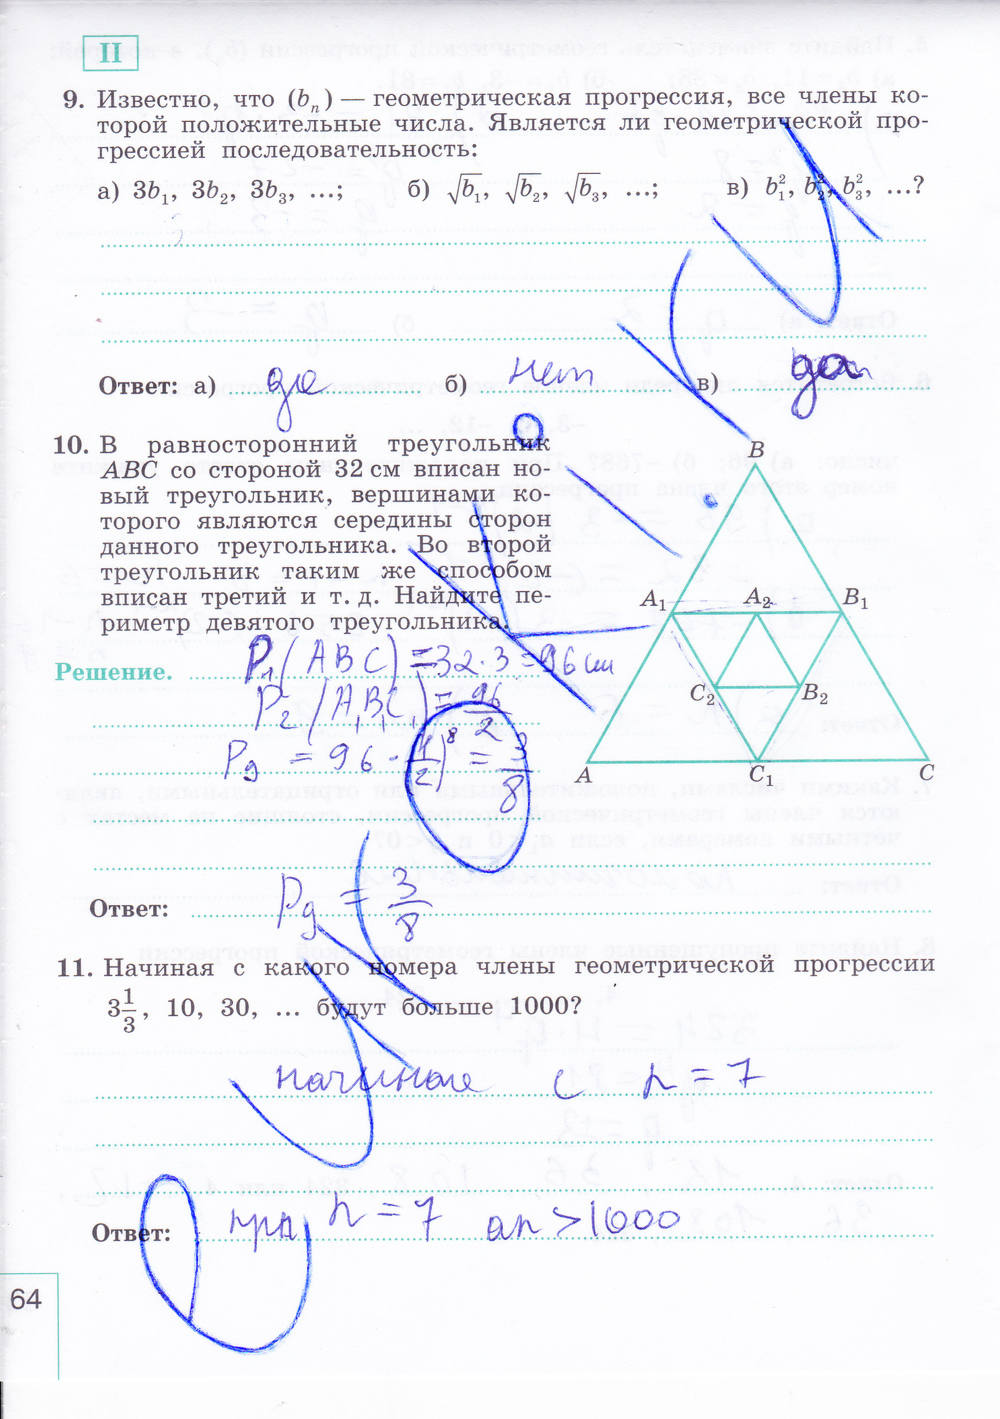 II
9. Известно, что (bₙ) — геометрическая прогрессия, все члены ко-
торой положительные числа. Является ли геометрической про-
грессией последовательность:
а) 3b₁, 3b₂, 3b₃, ...; б) √b₁, √b₂, √b₃, ...; в) b₁², b₂², b₃², ...?
Ответ: а) да б) нет в) да
10. В равносторонний треугольник
ABC со стороной 32 см вписан но-
вый треугольник, вершинами ко-
торого являются середины сторон
данного треугольника. Во второй
треугольник таким же способом
вписан третий и т. д. Найдите пе-
риметр девятого треугольника.
Решение. P₁(ABC) = 32·3 = 96 см
P₂(A₁B₁C₁) = 96/2
P₉ = 96·(1/2)⁸ = 3/8
Ответ: P₉ = 3/8
B
A₁ A₂ B₁
C₂ B₂
A C₁ C
11. Начиная с какого номера члены геометрической прогрессии
3 1/3, 10, 30, ... будут больше 1000?
начиная с n = 7
Ответ: при n = 7 an > 1000
64